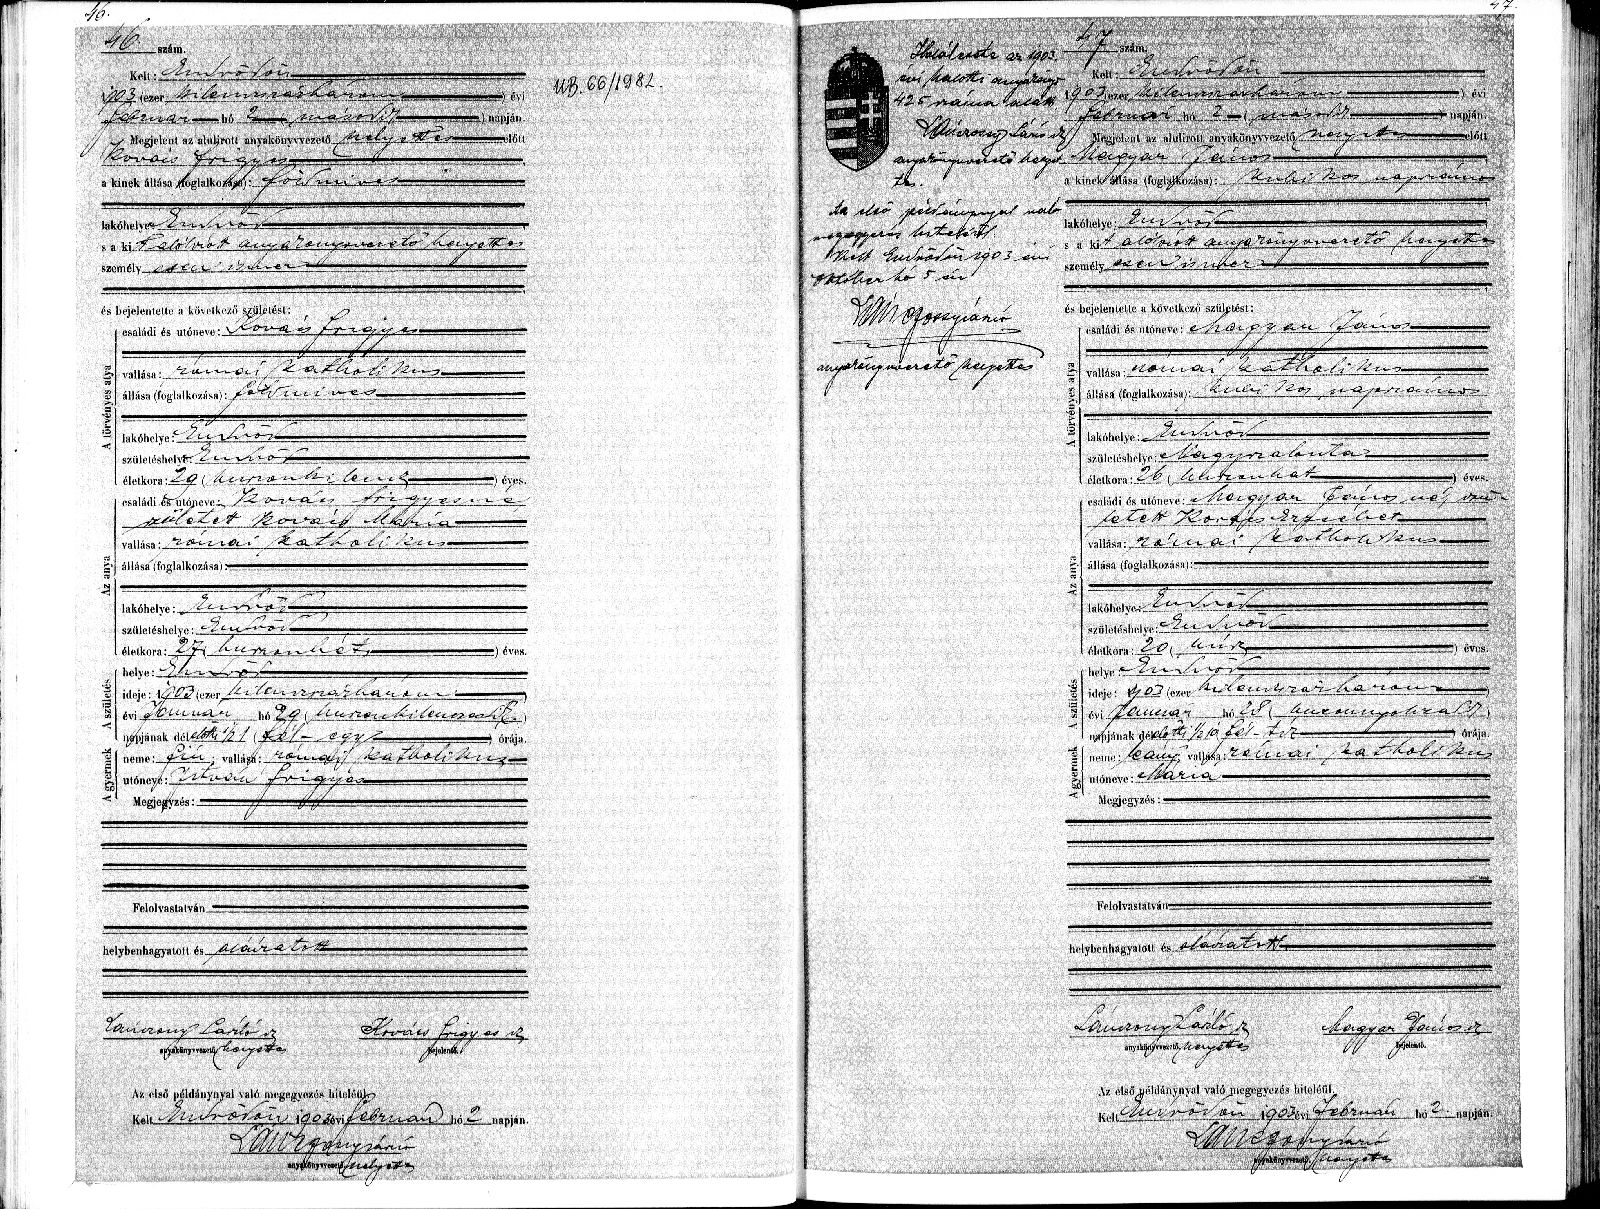 46.
46 szám.
Kelt: Endrődön
1903 (ezer kilenczszázhárom) évi
február hó 2 (második) napján
Megjelent az alulirott anyakönyvvezető helyettes előtt
Kovács Frigyes
a kinek állása (foglalkozása): földmives
lakóhelye: Endrőd
s a kit alólirott anyakönyvvezető helyettes
személyesen ismer
és bejelentette a következő születést:
A törvényes atya
családi és utóneve: Kovács Frigyes
vallása: római katholikus
állása (foglalkozása): földmives
lakóhelye: Endrőd
születéshelye: Endrőd
életkora: 29 (huszonkilencz) éves.
Az anya
családi és utóneve: Kovács Frigyesné
született Kovács Mária
vallása: római katholikus
állása (foglalkozása):
lakóhelye: Endrőd
születéshelye: Endrőd
életkora: 27 (huszonhét) éves.
A születés
helye: Endrőd
ideje: 1903 (ezer kilenczszázhárom)
évi Január hó 29 (huszonkilenczedik)
napjának délelőtti ½1 (fél-egy) órája.
A gyermek
neme: fiú, vallása: római katholikus
utóneve: István Frigyes
Megjegyzés:
Felolvastatván
helybenhagyatott és aláiratott
Lánczony László sk
Kovács Frigyes sk
anyakönyvvezető helyettes
bejelentő.
Az első példánynyal való megegyezés hiteléül,
Kelt Endrődön 1903 évi február hó 2 napján.
anyakönyvvezető helyettes
UB. 66/1982.
47.
Halálesete az 1903.
évi halotti anyakönyv
425 száma alatt
anyakönyvvezető helyet
tes.
Az első példánynyal való
megegyezés hiteléül
Kelt Endrődön 1903 évi
október hó 5 én
anyakönyvvezető helyettes
47 szám.
Kelt: Endrődön
1903 (ezer kilenczszázhárom) évi
február hó 2 (második) napján.
Megjelent az alulirott anyakönyvvezető helyettes előtt
Magyar János
a kinek állása (foglalkozása): kubikos napszámos
lakóhelye: Endrőd
s a kit alólirott anyakönyvvezető helyettes
személyesen ismer
és bejelentette a következő születést:
A törvényes atya
családi és utóneve: Magyar János
vallása: római katholikus
állása (foglalkozása): kubikos napszámos
lakóhelye: Endrőd
születéshelye: Nagyszalonta
életkora: 26 (huszonhat) éves.
Az anya
családi és utóneve: Magyar Jánosné, szü-
letett Kovács Erzsébet
vallása: római katholikus
állása (foglalkozása):
lakóhelye: Endrőd
születéshelye: Endrőd
életkora: 20 (húsz) éves.
A születés
helye: Endrőd
ideje: 1903 (ezer kilenczszázhárom)
évi Január hó 28 (huszonnyolczadik)
napjának délelőtti ½10 fél-tíz órája.
A gyermek
neme: leány, vallása: római katholikus
utóneve: Mária
Megjegyzés:
Felolvastatván
helybenhagyatott és aláiratott
Lánczony László sk
Magyar János sk
anyakönyvvezető helyettes
bejelentő.
Az első példánynyal való megegyezés hiteléül,
Kelt Endrődön 1903 évi Február hó 2. napján.
anyakönyvvezető helyettes